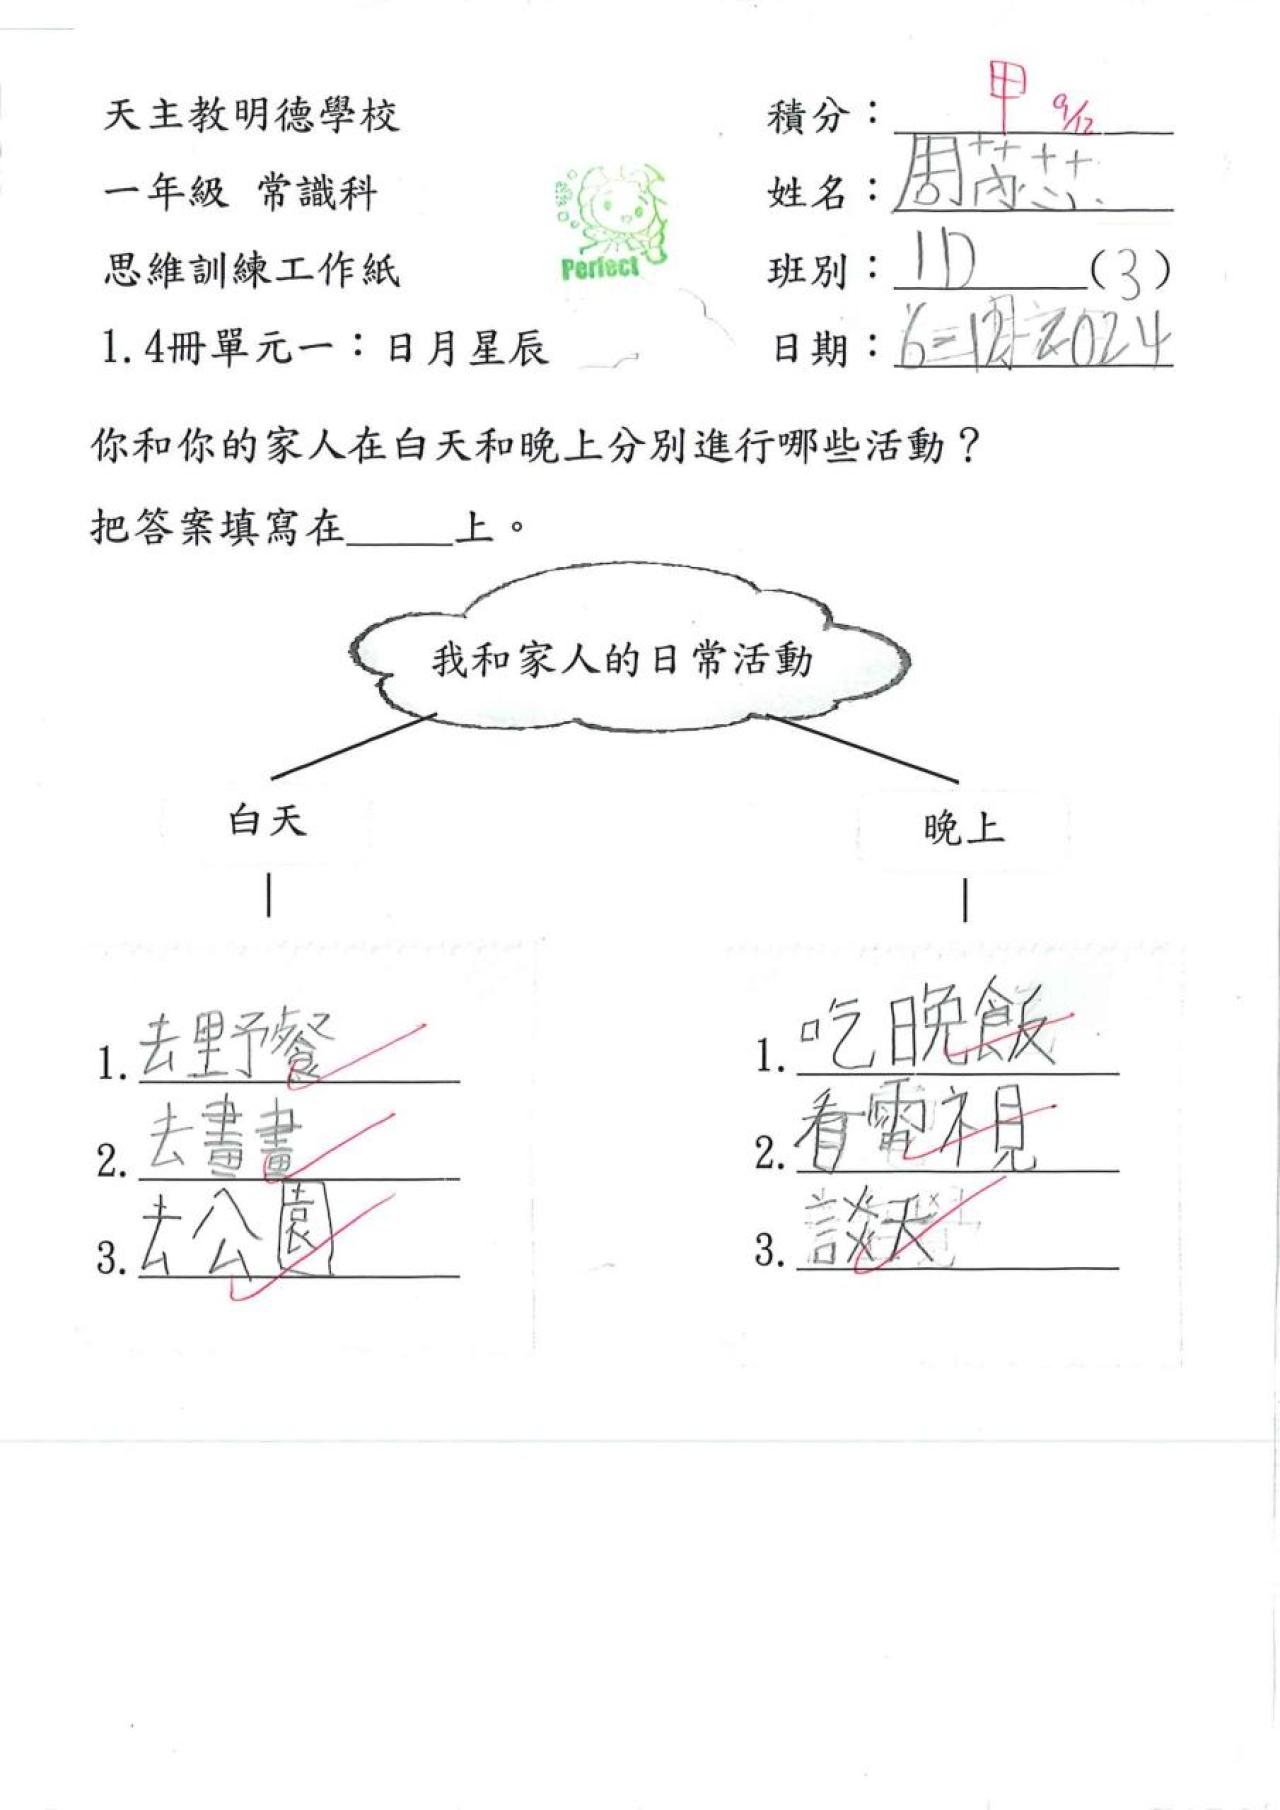 天主教明德學校
積分：甲 9/12
一年級 常識科
姓名：周芮芯
Perfect
思維訓練工作紙
班別：1D (3)
1.4冊單元一：日月星辰
日期：2024
你和你的家人在白天和晚上分別進行哪些活動？
把答案填寫在_____上。
我和家人的日常活動
白天
晚上
1.去野餐
2.去畫畫
3.去公園
1.吃晚飯
2.看電視
3.談天